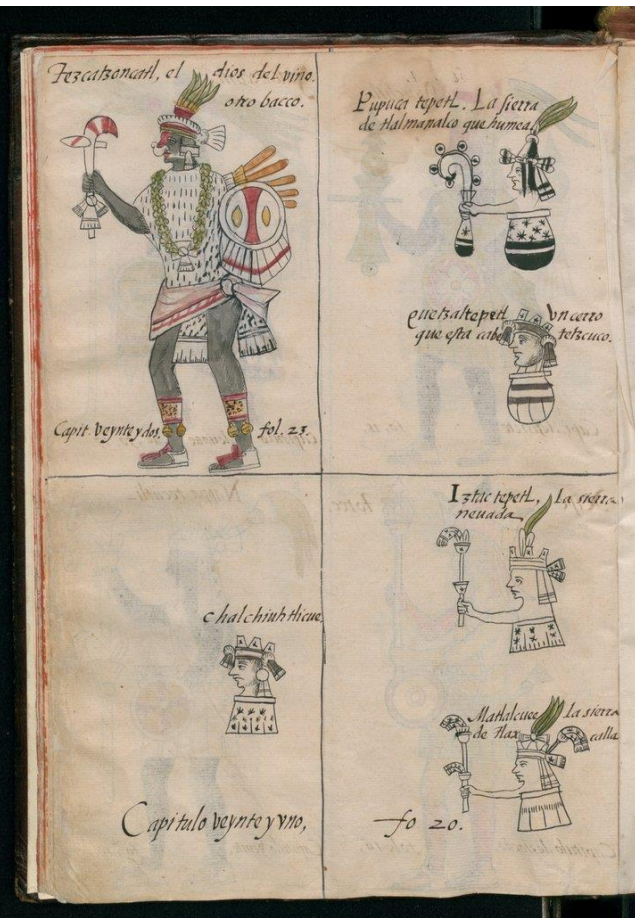 Tezcatzoncatl, el dios del vino.
otro bacco.
Capit veynte y dos, fol. 23.
Pupuca tepetl. La sierra
de tlalmanalco que humea.
quetzaltepetl Vn cerro
que esta cabe tetzcuco.
chalchiuhtlicue
Iztac tepetl, La sierra
neuada
Matlalcuee La sierra
de tlax calla
Capitulo veynte y vno, fo 20.